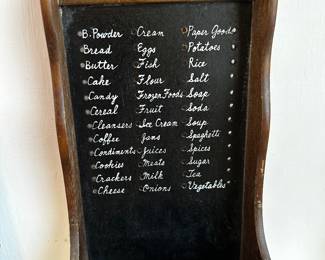 B. Powder Cream Paper Goods
Bread Eggs Potatoes
Butter Fish Rice
Cake Flour Salt
Candy Frozen Foods Soap
Cereal Fruit Soda
Cleansers Ice Cream Soup
Coffee Jams Spaghetti
Condiments Juices Spices
Cookies Meats Sugar
Crackers Milk Tea
Cheese Onions Vegetables